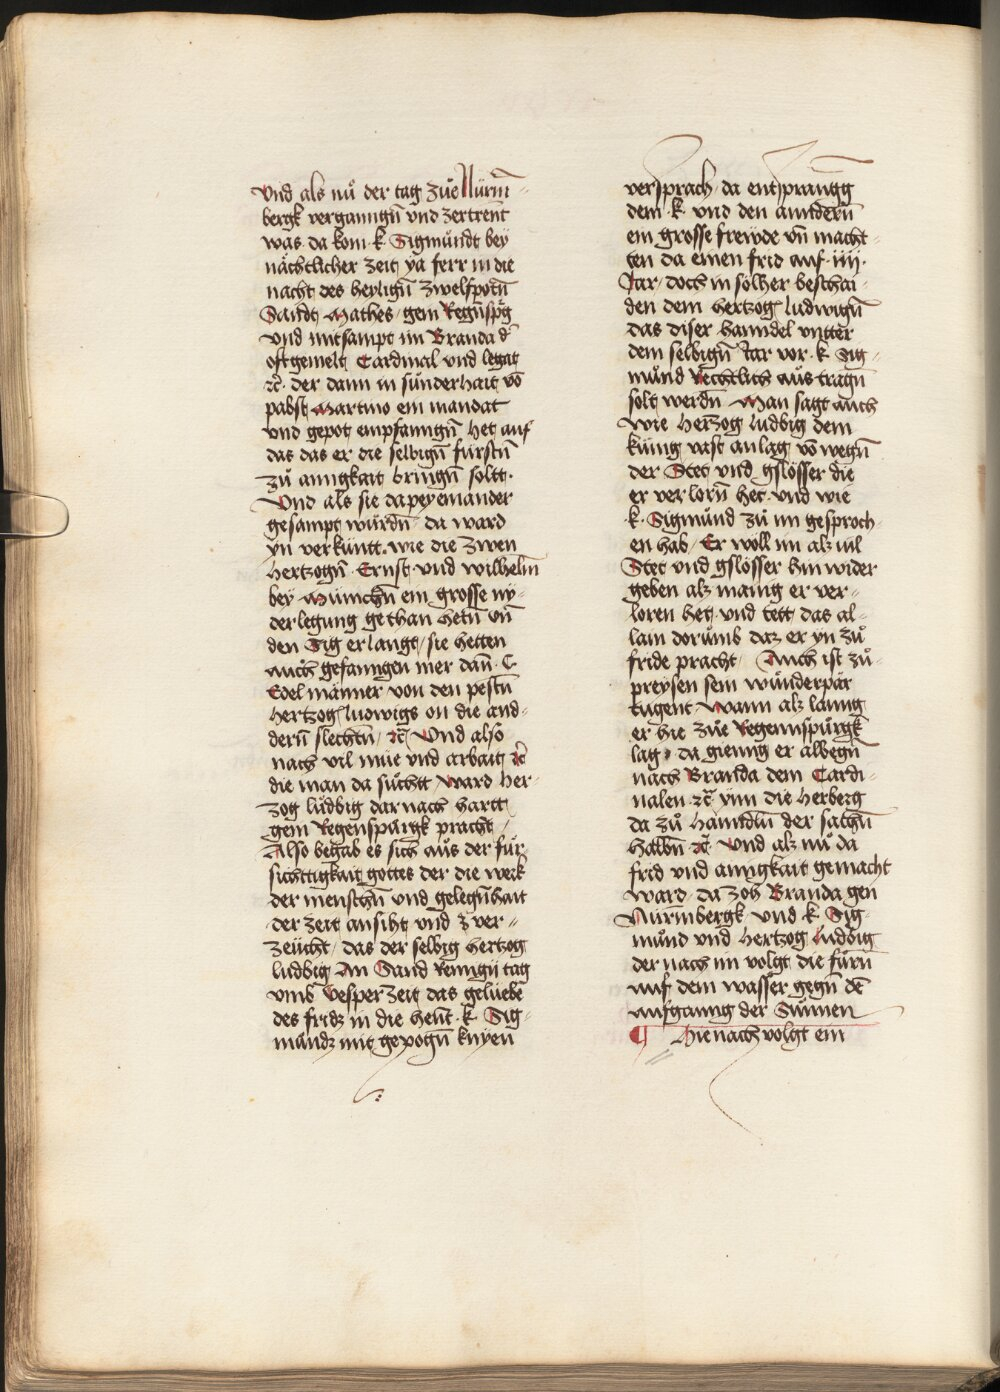 Und als nů der tag zůe Nürm̄=
bergk verganngn̄ vnd zertrent
was. da kom k. Sigmůndt bey
nächtlicher zeit, ya ferr in die
nacht des heylign̄ zwelfpotn̄
Sandt Mathes, gem Regn̄spḡ
vnd mitsampt im Branda d̄
oftgemelt Cardinal vnd legat
ꝛc̄. der dann in sünderhait võ
pabst Martino ein mandat
vnd gepot empfanngn̄ het auf
das das er die selbign̄ fürstn̄
zů ainigkait bringn̄ soltt.
Vnd als sie dapey einander
gesampt wůrdn̄ da ward
yn verkünt. wie die zwen
hertzogn̄ Ernst vnd wilhelm̄
bey Münichn̄ ein grosse ny-
derlegung gethan hetn̄ vn̄
den Sig erlangt, sie hetten
auch gefanngen mer dan̄ .C.
Edel männer von den pestn̄
hertzog ludwigs on die and=
dern̄ slechtn̄, ꝛc̄ Vnd also
nach vil müe vnd arbait ꝛc̄
die man da sůchtt ward her-
zog lůdbig darnach hartt
gem Regenspůrgk pracht,
Also begab es sich aůs der für
sichttigkait gottes der die werk
der menschn̄ vnd gelegn̄hait
der zeit ansiht vnd zver=
zeücht, das der selbig hertzog
ludbig An Sand Remigii tag
vmb Vesperzeit das gelüebe
des fridz in die hent .k. Sig=
můndz mit gepogn̄ knyen
versprach, da entsprangg
dem .k. vnd den anndern̄
ein grosse frewde vn̄ macht=
ten da einen frid auf .iiii.
Jar, doch in solher beschai=
den dem hertzog ludwign̄
das diser hanndel vntter
dem selbign̄ Jar vor .k. Sig=
můnd Rechtlich aůs tragn̄
solt werdn̄ Man sagt auch
wie hertzog ludbig dem
künig vast anlag võ wegn̄
der Stet vnd gslösser die
er verlorn̄ het vnd wie
.k. Sigmůnd zů im gesproch-
en hab, Er woll im alz vil
Stet vnd gslösser hin wider
geben alz mainig er ver=
loren het, vnd tett das al=
lain dorůmb daz er yn zů
fride pracht, Auch ist zů=
preysen sein wůnderpär
tugent Wann alz lanng
er hie zůe Regennspůrgk
lag, da gienng er albegn̄
nach Branda dem Cardi=
nalen ꝛc̄ ynn die herberg
da zů hanndln̄ der sachn̄
halbn̄ ꝛc̄ Vnd alz nů da
frid vnd ainigkait gemacht
ward. da zoh Branda gen
Nürmbergk vnd k. Sig=
můnd vnd hertzog ludbig
der nach im volgt, die fůrn̄
auf dem wasser gegn̄ dē
aufganng der Sunnen
¶ Hienach volgt ein